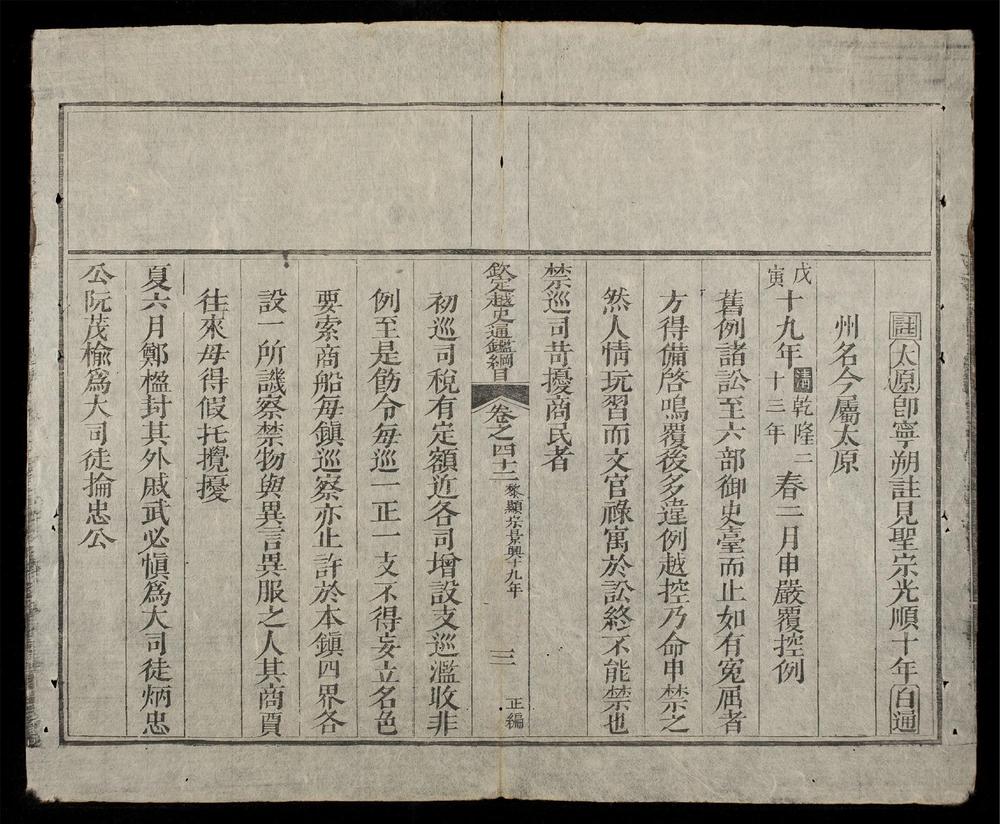 註太原卽寧朔註見聖宗光順十年白通
州名今屬太原
戊寅十九年清乾隆二十三年春二月申嚴覆控例
舊例諸訟至六部御史臺而止如有寃屈者
方得備啓鳴覆後多違例越控乃命申禁之
然人情玩習而文官祿寓於訟終不能禁也
禁巡司苛擾商民者
欽定越史通鑑綱目 卷之四十二 黎顯宗景興十九年 三 正編
初巡司稅有定額近各司增設支巡濫收非
例至是飭令每巡一正一支不得妄立名色
要索商船每鎭巡察亦止許於本鎭四界各
設一所譏察禁物與異言異服之人其商賈
往來毋得假托攪擾
夏六月鄭楹封其外戚武必愼爲大司徒炳忠
公阮茂楡爲大司徒掄忠公